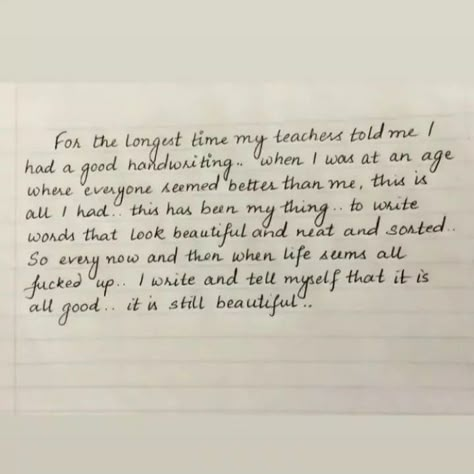 For the longest time my teachers told me I
had a good handwriting.. when I was at an age
where everyone seemed better than me, this is
all I had.. this has been my thing.. to write
words that look beautiful and neat and sorted..
So every now and then when life seems all
fucked up.. I write and tell myself that it is
all good.. it is still beautiful..